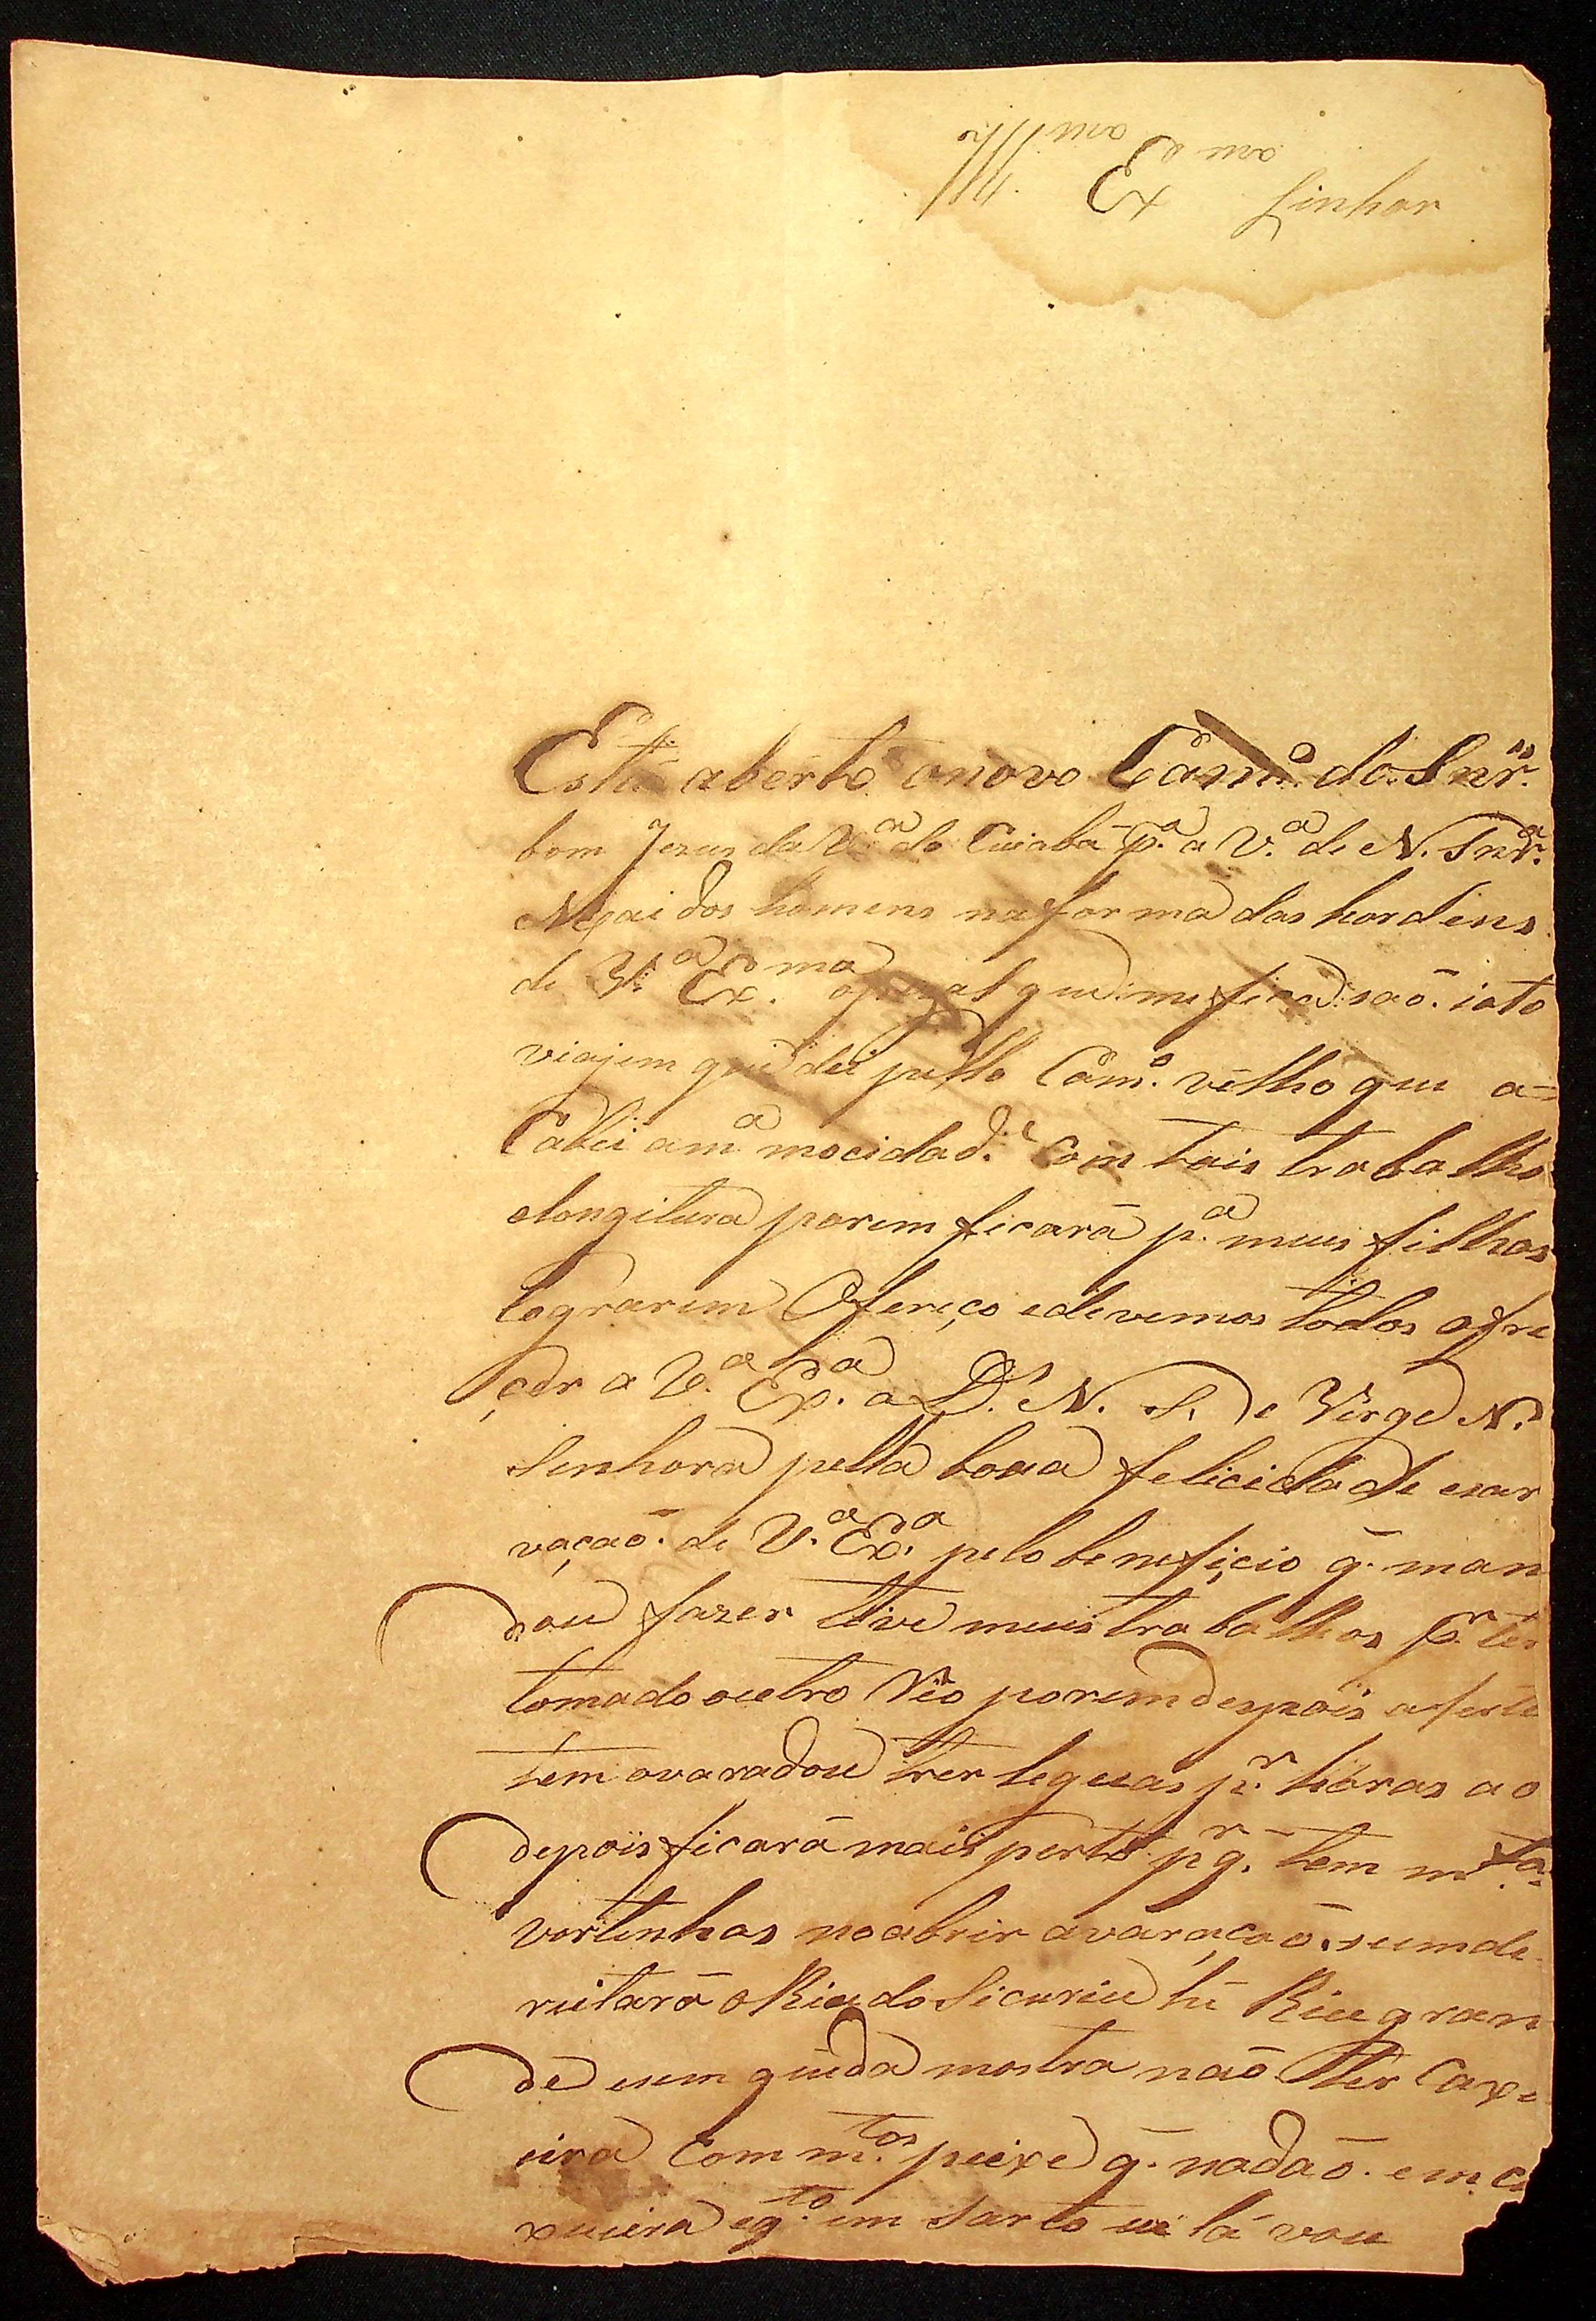 Ill.mo Ex.mo Sinhor
Está aberto o novo Cam.º do Snr.
bom Jezus da V.ª do Cuiabá p.ª a V.ª de N. Snr.ª
Mai dos homens na forma das hordens
de V.ª Ex.ma que me fica saõ. ioto
viajem que dei pello Cam.º velho que a=
Cabei a m.ª mocidad.e Com tais trabalho
elongitura porem ficarã p.ª meus filhos
lograrem Ofereço e devemos todos ofre
çer a V.ª Ex.ª a D.s N. S. e Virge N.
Senhora pella boua felicidade
vaçaõ. de V.ª Ex.ª pelo benefiçio q̃. man
dou fazer tive meus trabalhos p.r ter
tomado outro Rio porem despois
tem ovaradou trer leguas p.r hóras ao
depois ficarã mais perto p.r q̃. tem m.ta
vortinhas no abrir a varaçaõ. sumde
ruitarã o Rio do Sicuriu hé Riu gran
de eem guida mostra naõ ter Caxo
eira Com m.tos peixe q̃. nadaõ. em ca
xueira eq.to em sarto lá vou